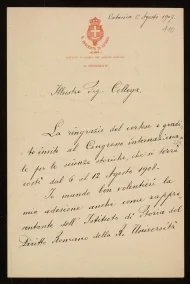 Catania 1 Agosto 1907.
Illustre Sig. Collega,
La ringrazio del cortese e gradi-
to invito al Congresso internaziona-
le per le scienze storiche, che si terrà
costì dal 6 al 12 Agosto 1908.
Io mando ben volentieri la
mia adesione anche come rappre-
sentante dell'Istituto di Storia del
Diritto Romano della R. Università